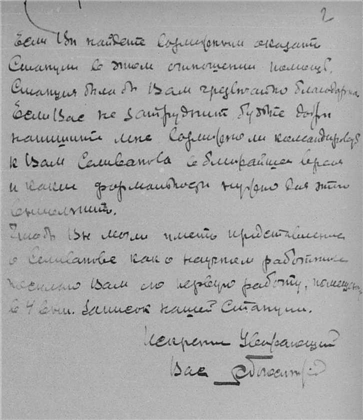 2
Если Вы найдете возможным оказать
Станции в этом отношении помощь,
Станция была бы Вам чрезвычайно благодарна.
Если Вас не затруднит будьте добры
напишите мне возможно ли командировать
к Вам Селиванова в ближайшее время
и какие формальности нужно для этого
выполнить.
Чтобы Вы могли иметь представление
о Селиванове как о научном работнике
посылаю Вам его первую работу, помещ.
в 4 вып. Записок нашей Станции.
Искренно Уважающий
Вас